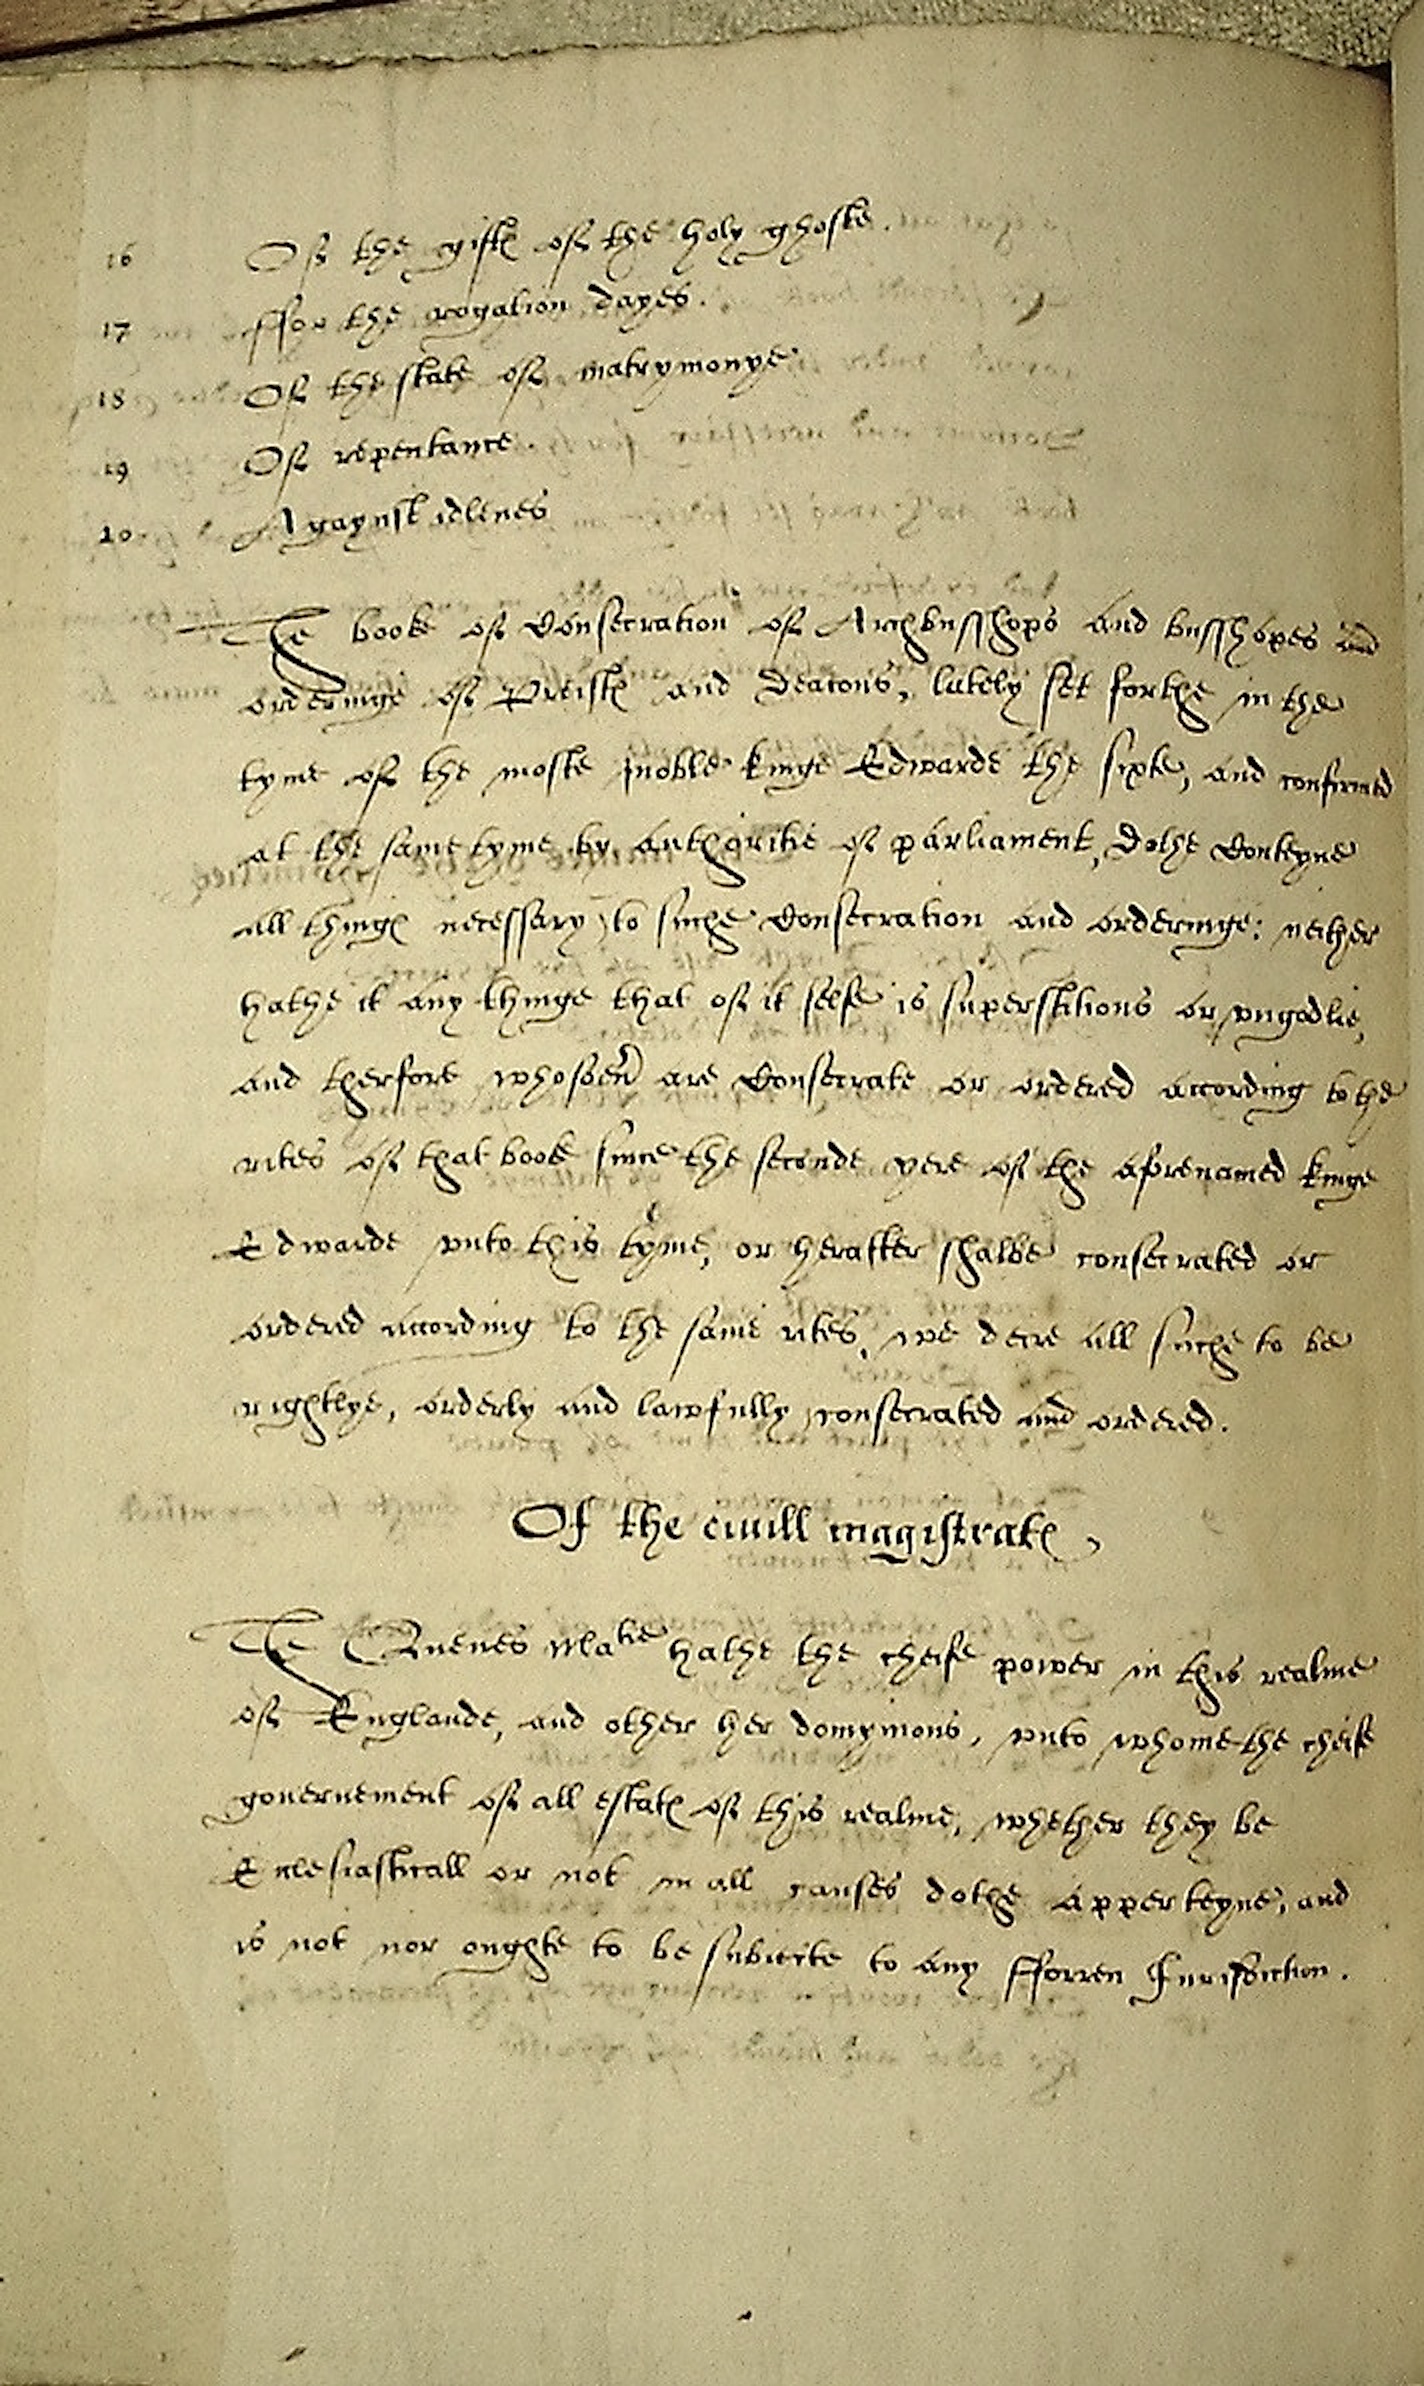 16 Of the giftꝭ of the holy ghoste.
17 ffor the rogation dayes.
18 Of the state of matrymonye
19 Of repentance
20 Agaynst idlenes
The booke of Consecration of Archbusshops and busshopes and
orderinge of Preistꝭ and Deacons, lately set forthe in the
tyme of the moste noble kinge Edwarde the sixte, and confirmed
at the same tyme by authoritie of parliament, dothe Conteyne
all thingꝭ necessary to suche Consecration and orderinge: neither
hathe it any thinge that of it selfe is superstitious or vngodlie,
and therfore whosoeũ are Consecrate or ordered according to the
rites of that booke since the seconde yere of the aforenamed kinge
Edwarde vnto this tyme, or herafter shalbe consecrated or
ordered according to the same rites, we decre all suche to be
rightlye, orderly and lawfully consecrated and ordered.
Of the ciuill magistratꝭ
The Quenes Matie hathe the cheife power in this realme
of Englande, and other her domynions, vnto whome the cheife
gouernement of all estatꝭ of this realme, whether they be
Ecclesiasticall or not in all causes dothe apperteyne, and
is not nor oughte to be subiecte to any fforren Iurisdiction.